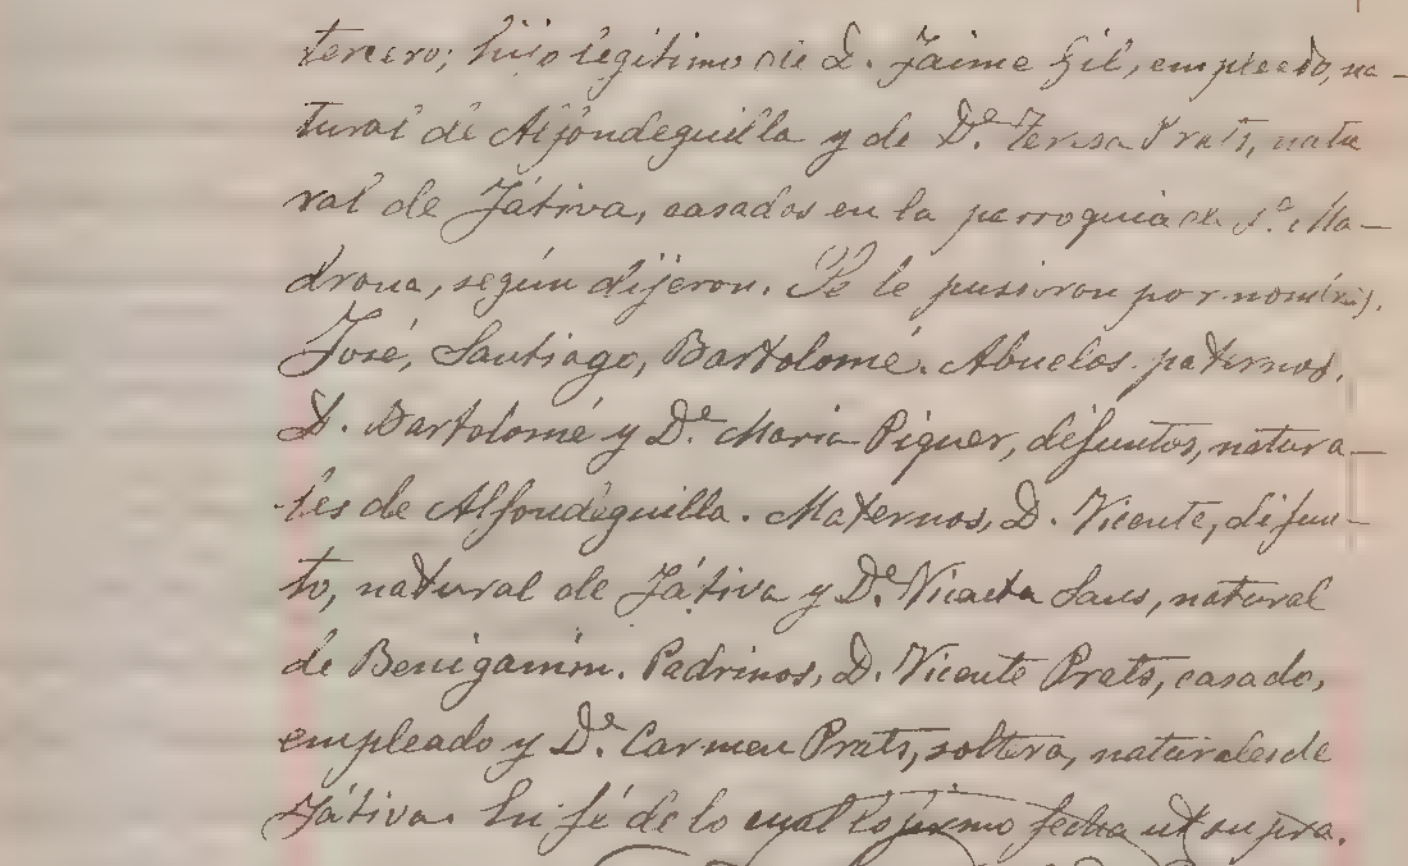 tercero; hijo legítimo de D. Jaime Gil, empleado, na-
tural de Alfondeguilla y de Dª Teresa Prats, natu
ral de Játiva, casados en la parroquia de Sª Ma-
drona, según dijeron. Se le pusieron por nombres.
José, Santiago, Bartolomé. Abuelos paternos.
D. Bartolomé y Dª María Piquer, difuntos, natura-
les de Alfondeguilla. Maternos, D. Vicente, difun-
to, natural de Játiva y Dª Vicenta Sans, natural
de Benigamim. Padrinos, D. Vicente Prats, casado,
empleado y Dª Carmen Prats, soltera, naturales de
Játiva. En fé de lo cual lo firmo fecha ut supra.